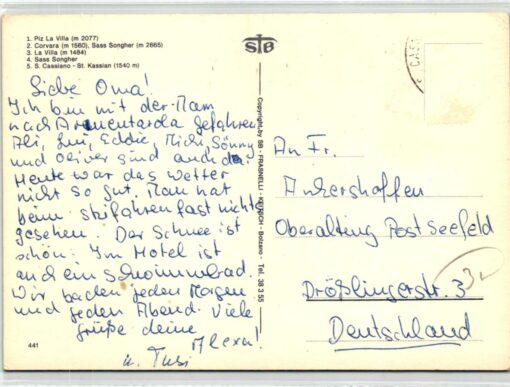 1. Piz La Villa (m 2077)
2. Corvara (m 1560), Sass Songher (m 2665)
3. La Villa (m 1484)
4. Sass Songher
5. S. Cassiano - St. Kassian (1540 m)
Liebe Oma!
Ich bin mit der Mam
nach Armentarola gefahren
Ali, Eddie, Michi, Sonny
und Oliver sind auch da.
Heute war das Wetter
nicht so gut. Man hat
beim skifahren fast nichts
gesehen. Der Schnee ist
schön. Im Hotel ist
auch ein schwimmbad.
Wir baden jeden Morgen
und jeden Abend. Viele
grüße deine
Alexa!
u. Tusi
441
STB
Copyright by SB - FRASNELLI - KEITSCH - Bolzano - Tel. 38 3 55
CAS
An Fr.
Ankershoffen
Oberalting Post Seefeld
Drößlingerstr. 3
Deutschland